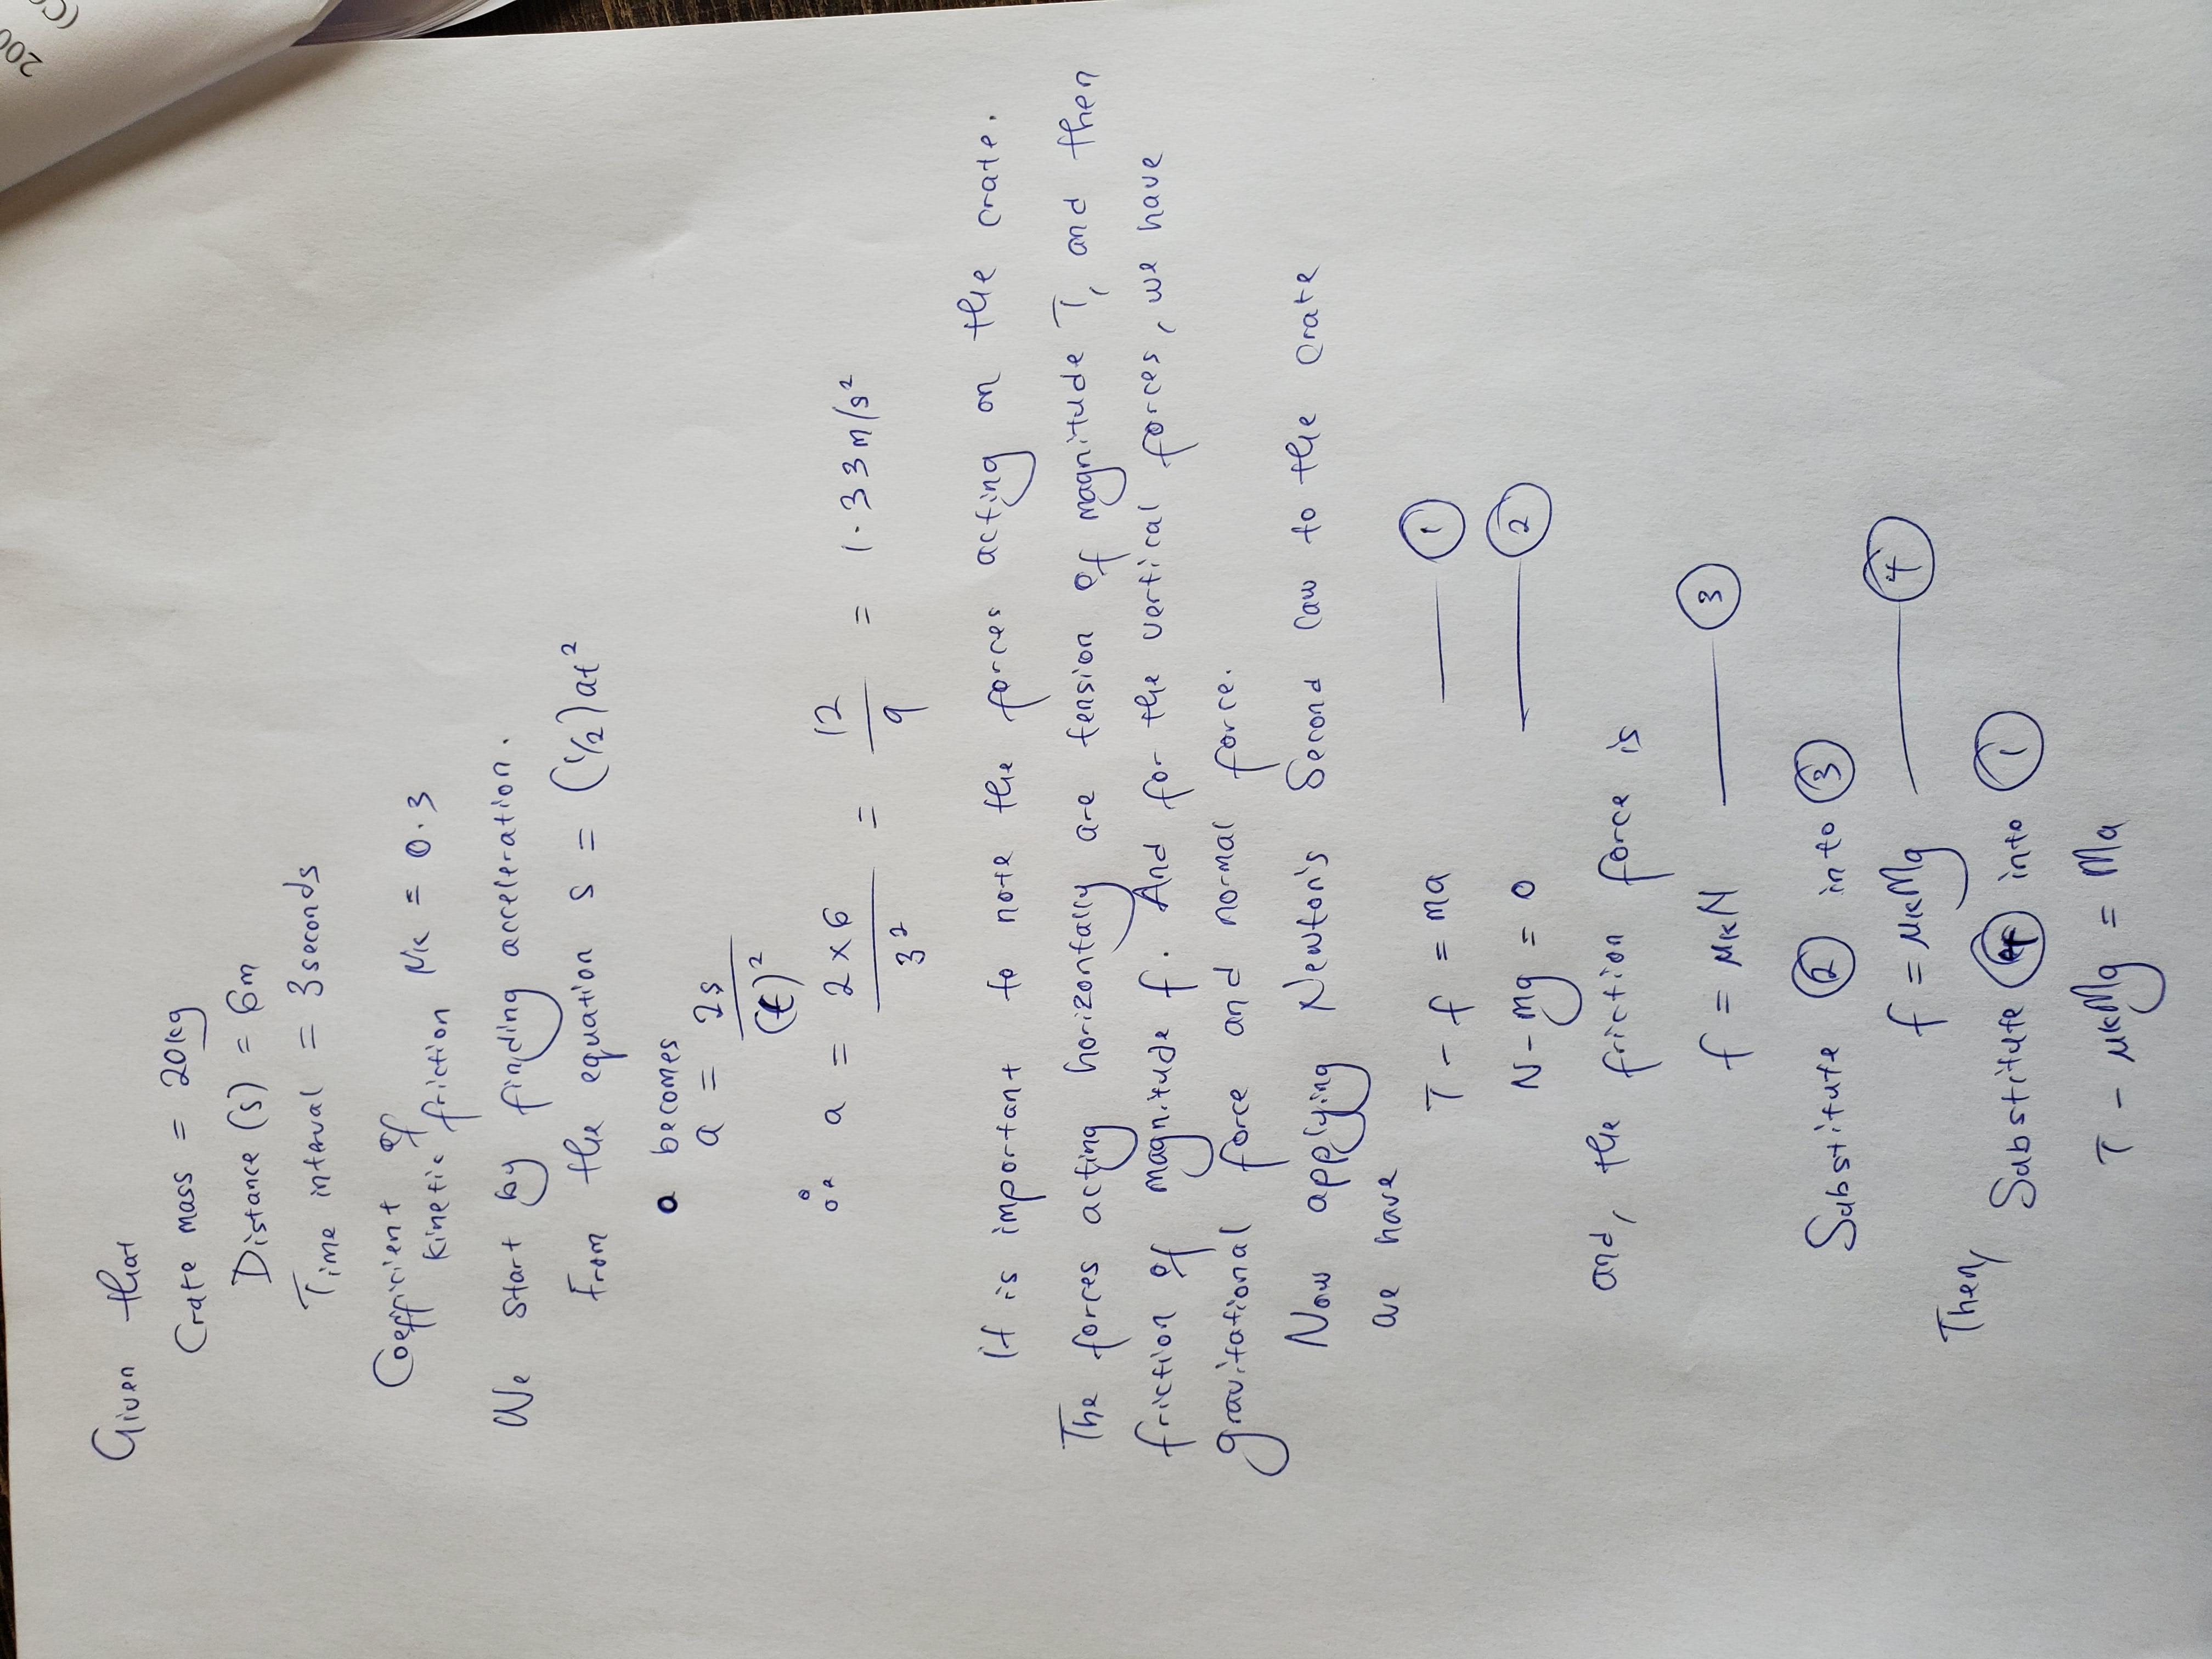 200
Given that
Crate mass = 20kg
Distance (s) = 6m
Time interval = 3seconds
Coefficient of
kinetic friction μk = 0.3
We start by finding acceleration.
From the equation s = (1/2)at²
a becomes
a = 2s/(t)²
∴ a = 2×6/3² = 12/9 = 1.33m/s²
It is important to note the forces acting on the crate.
The forces acting horizontally are tension of magnitude T, and then
friction of magnitude f. And for the vertical forces, we have
gravitational force and normal force.
Now applying Newton's Second law to the crate
we have
T - f = ma —— ①
N - mg = 0 —— ②
and, the friction force is
f = μkN —— ③
Substitute ② into ③
f = μkMg —— ④
Then,
Substitute ④ into ①
T - μkMg = Ma